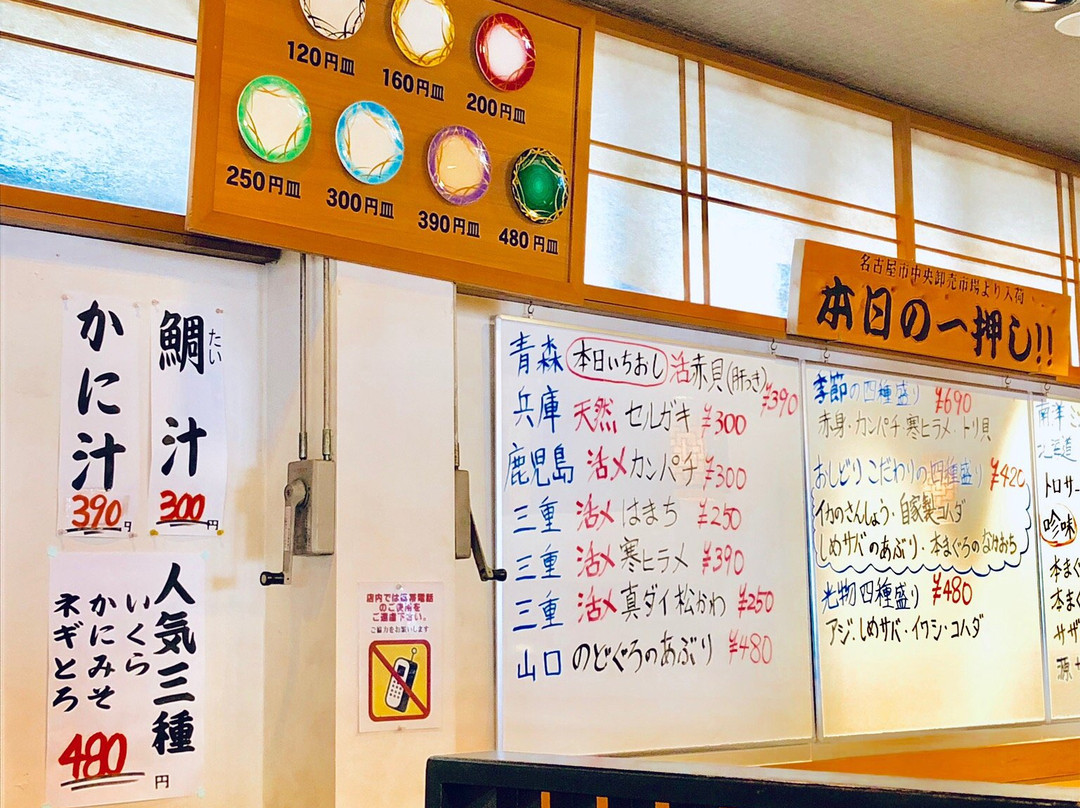 120円皿
160円皿
200円皿
250円皿
300円皿
390円皿
480円皿
名古屋市中央卸売市場より入荷
本日の一押し!!
鯛汁
たい
300円
かに汁
390円
人気三種
いくら
かにみそ
ネギとろ
480円
店内では携帯電話
のご使用を
ご遠慮下さい。
ご協力をお願いします
青森 本日いちおし 活赤貝(肝つき) ¥390
兵庫 天然 セルガキ ¥300
鹿児島 活〆カンパチ ¥300
三重 活〆はまち ¥250
三重 活〆寒ヒラメ ¥390
三重 活〆真ダイ松かわ ¥250
山口 のどぐろのあぶり ¥480
季節の四種盛り ¥690
赤身・カンパチ・寒ヒラメ・トリ貝
おしどりこだわりの四種盛り ¥420
イカのさんしょう・自家製コハダ
しめサバのあぶり・本まぐろのなけおち
光物四種盛り ¥480
アジ・しめサバ・イワシ・コハダ
南洋
北海道
トロサー
吟味
本まぐ
本まぐ
サザ
源